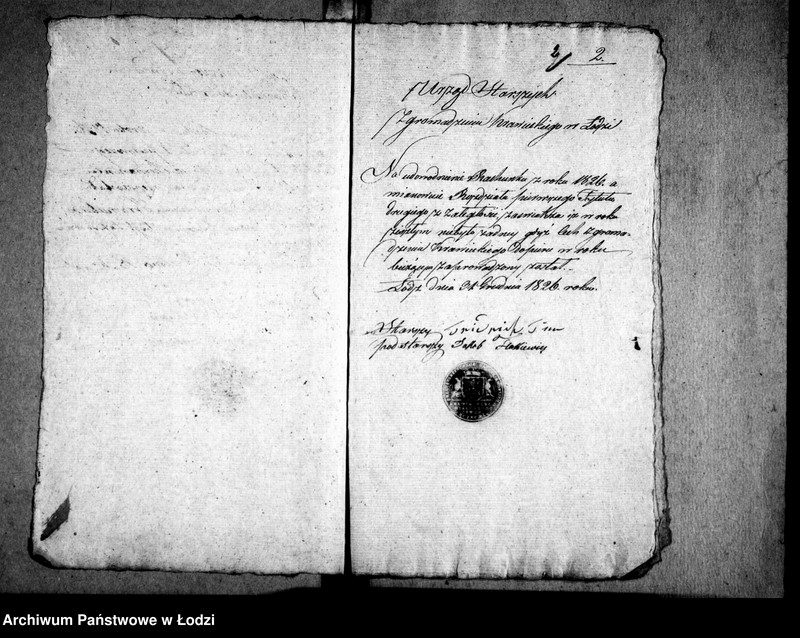 2/ 2.
Urząd Starszych
Zgromadzenia Krawieckiego w Łodzi
Na udowodnienie Rachunku z roku 1826. a
mianowicie Rozdziału pierwszego Tytułu
drugiego z Zaległości, zaświadcza iż w roku
zeszłym niebyło żadney gdyż Cech zgroma-
dzenia Krawieckiego dopiero w roku
bieżącym zaprowadzony został.
Łódź dnia 31 Grudnia 1826. roku.
Starszy
podstarszy Jakob
Archiwum Państwowe w Łodzi